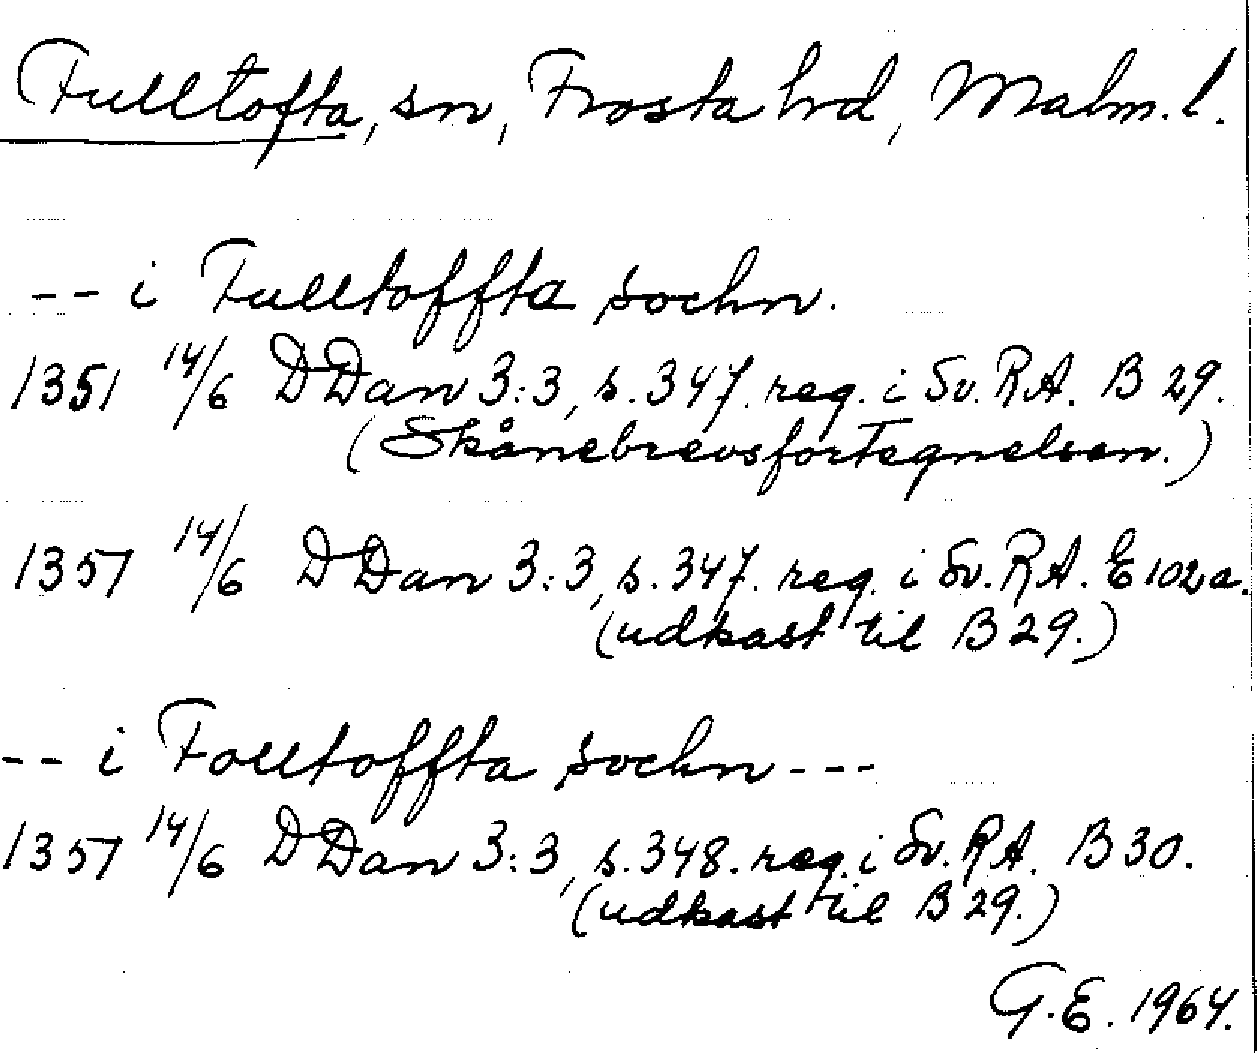 Fulltofta, sn, Frosta hd, Malm. l.
-- i Fulltoffta sochn.
1351 14/6 DDan 3:3, s. 347. reg. i Sv. RA. B 29.
(Skånebrevsfortegnelsen.)
1351 14/6 DDan 3:3, s. 347. reg. i Sv. RA. E 102a.
(udkast til B 29.)
-- i Folltoffta sochn ---
1351 14/6 DDan 3:3, s. 348. reg. i Sv. RA. B 30.
(udkast til B 29.)
G.E. 1964.